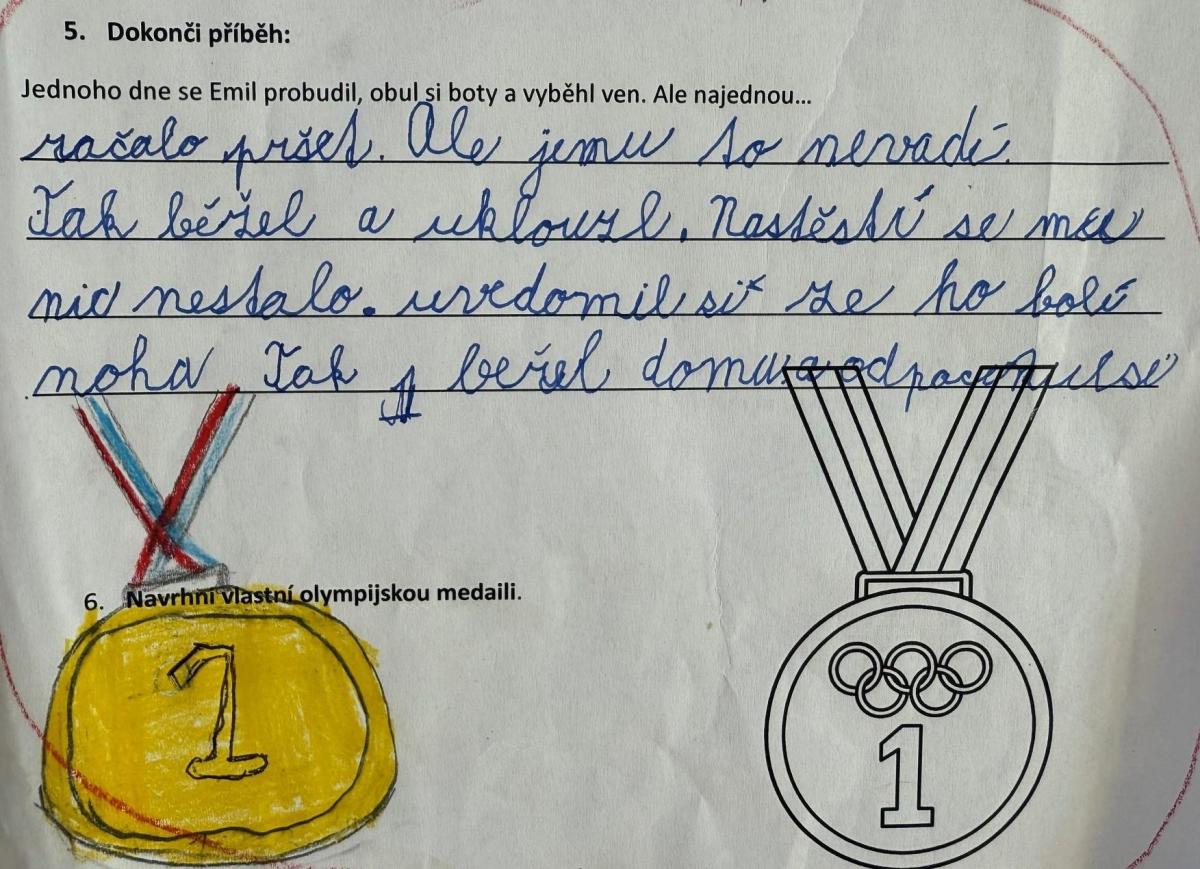 5. Dokonči příběh:
Jednoho dne se Emil probudil, obul si boty a vyběhl ven. Ale najednou...
začalo pršet. Ale jemu to nevadí.
Tak běžel a uklouzl. Nastěstí se mu
nic nestalo. uvedomil si ze ho bolí
noha. Tak běžel domu a odpočinul se
6. Navrhni vlastní olympijskou medaili.
1
1